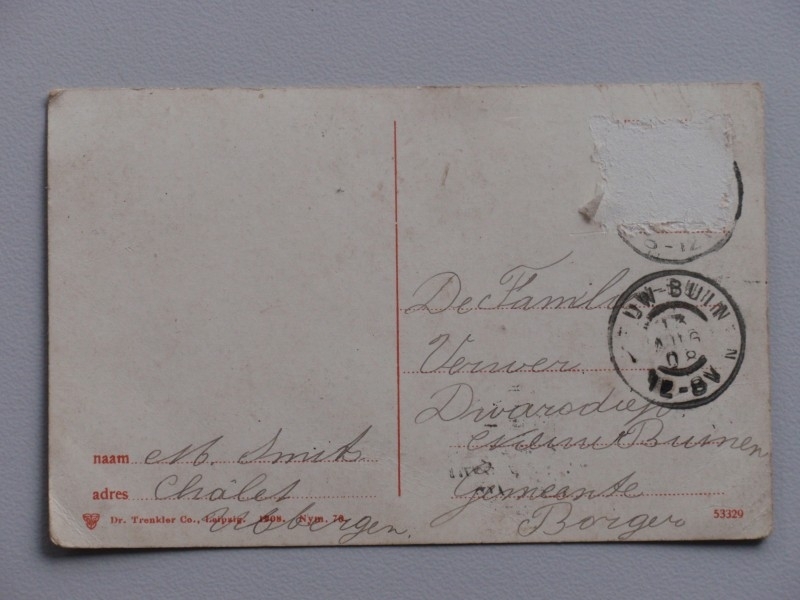 De Familie
Verwer
Dwarsdiep
Nieuw Buinen
Gemeente
Borger
UW-BUIN N
13
AUG
08
12-8V
-12
naam M. Smit
adres Châlet
Ubbergen.
Dr. Trenkler Co., Leipzig. 1908. Nym. 70
53329